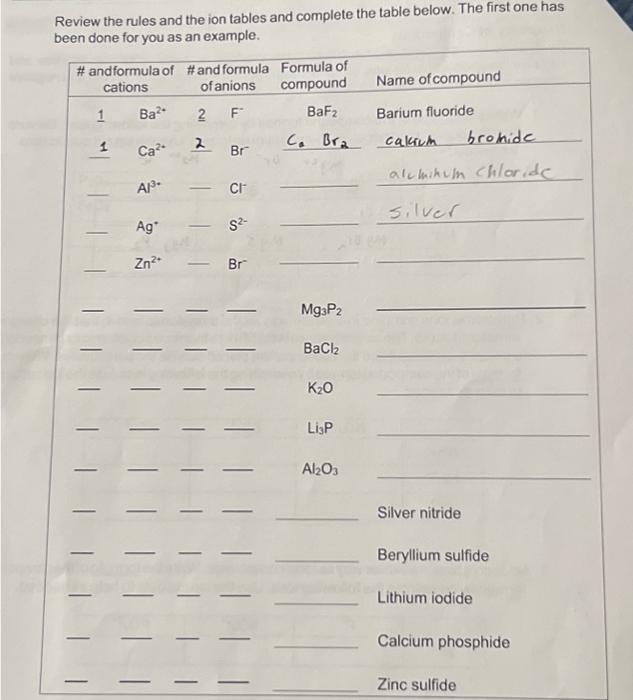 Review the rules and the ion tables and complete the table below. The first one has
been done for you as an example.
# and formula of # and formula Formula of
cations of anions compound Name of compound
1 Ba²⁺ 2 F⁻ BaF₂ Barium fluoride
1 Ca²⁺ 2 Br⁻ Ca Br₂ calcium bromide
Al³⁺ Cl⁻ aluminum chloride
Ag⁺ S²⁻ silver
Zn²⁺ Br⁻
Mg₃P₂
BaCl₂
K₂O
Li₃P
Al₂O₃
Silver nitride
Beryllium sulfide
Lithium iodide
Calcium phosphide
Zinc sulfide